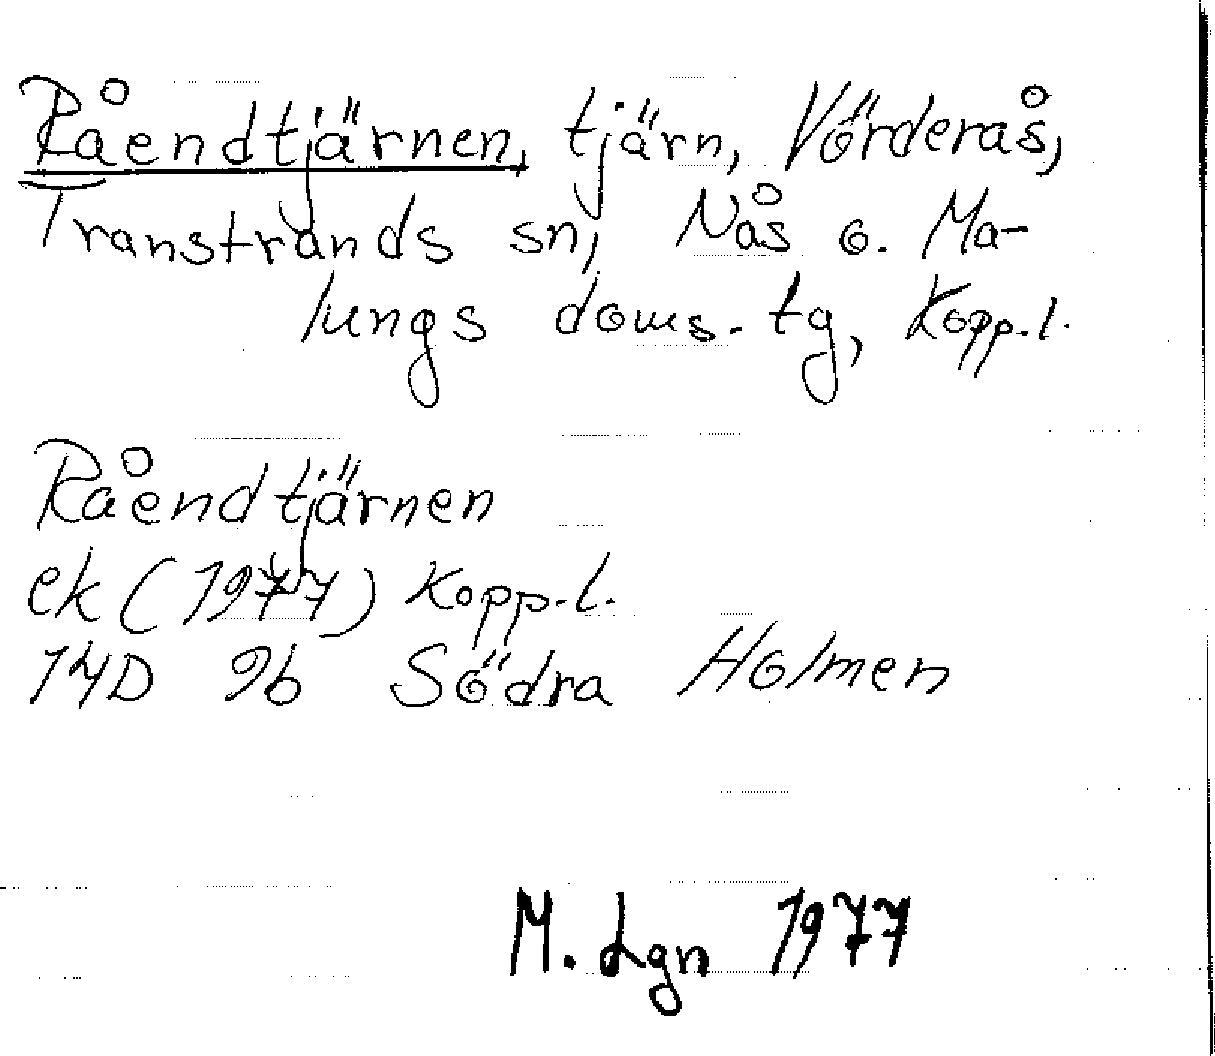 Råendtjärnen, tjärn, Vörderås,
Transtrands sn, Nås o. Ma-
lungs doms. tg, Kopp. l.
Råendtjärnen
ek (1977) Kopp. l.
14D 9b Södra Holmen
M. Lgn 1977